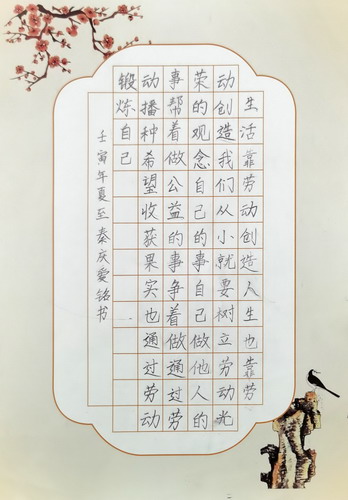 生活靠劳动创造人生也靠劳
动创造我们从小就要树立劳动光
荣的观念自己的事自己做他人的
事帮着做公益的事争着做通过劳
动播种希望收获果实也通过劳动
锻炼自己
壬寅年夏至秦庆愛铭书